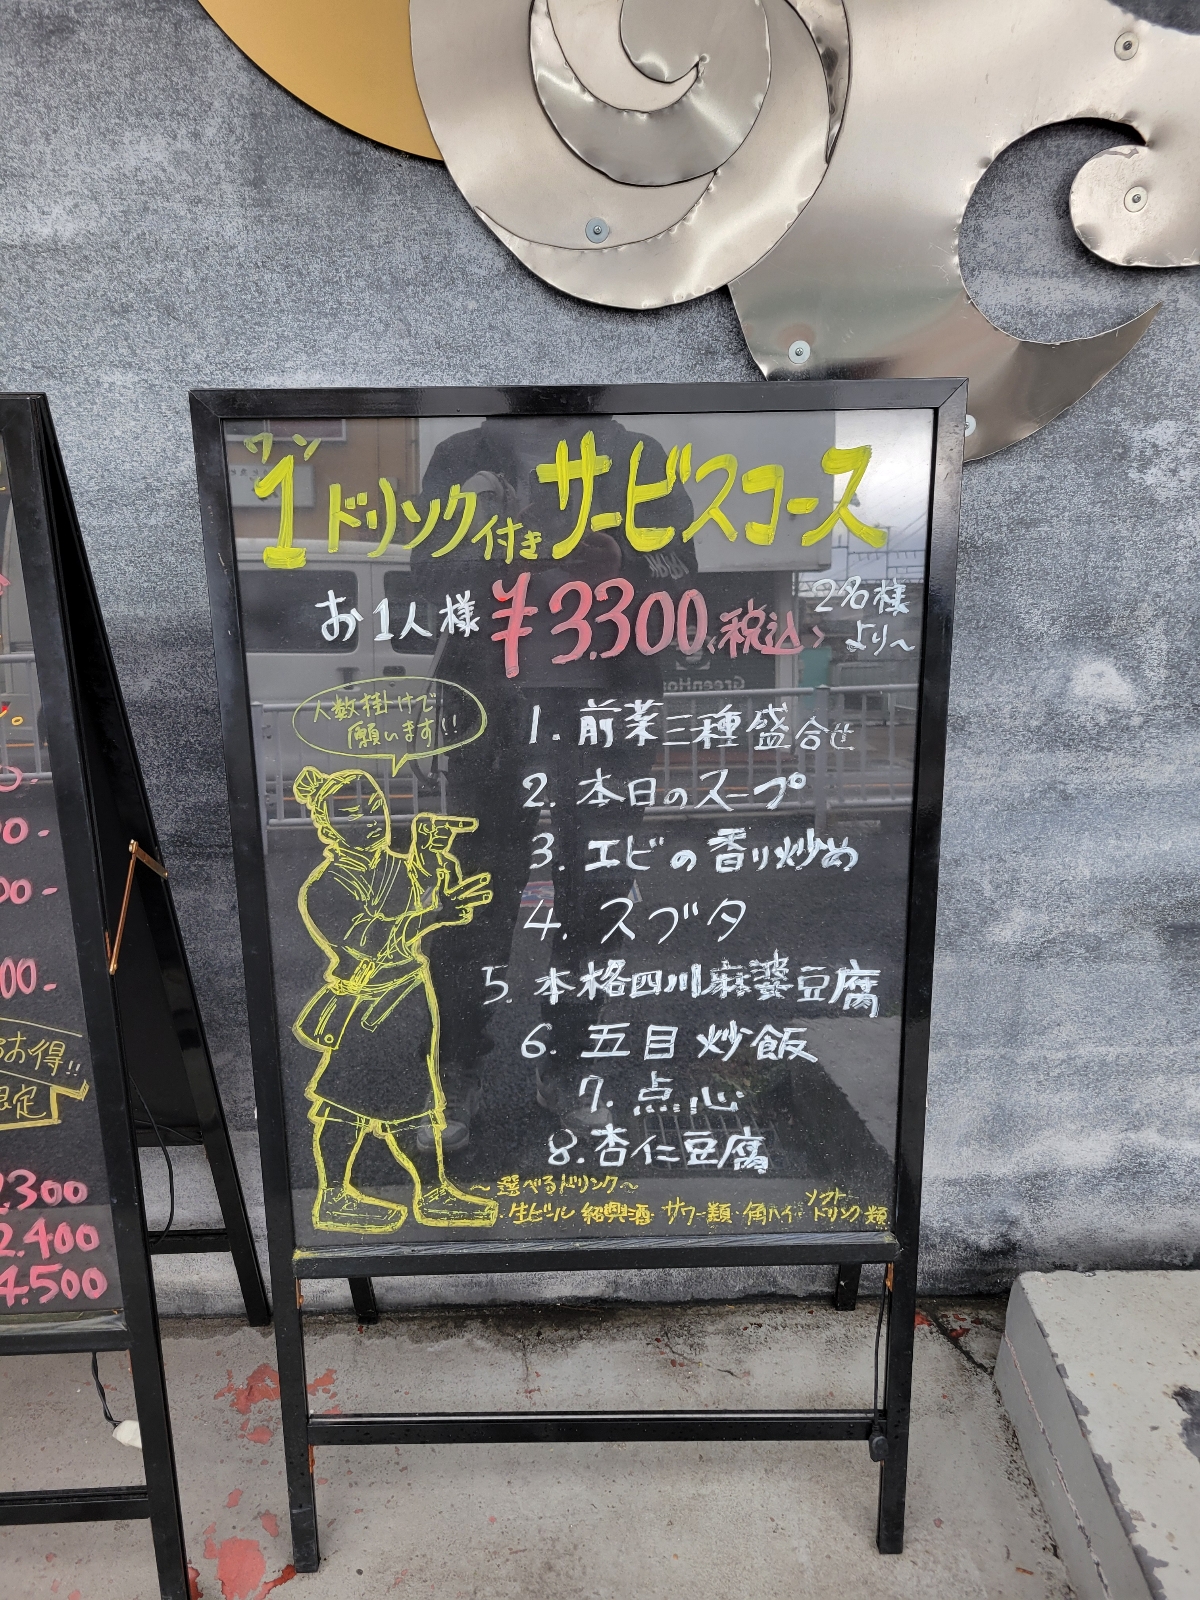 ワン
1ドリンク付きサービスコース
お1人様 ¥3.300〈税込〉 2名様より〜
人数掛けで
願います!!
1. 前菜三種盛合せ
2. 本日のスープ
3. エビの香り炒め
4. スブタ
5. 本格四川麻婆豆腐
6. 五目炒飯
7. 点心
8. 杏仁豆腐
〜選べるドリンク〜
ソフト
生ビール 紹興酒 サワー類・角ハイ・ドリンク類
お得!!
限定
2300
2.400
4.500